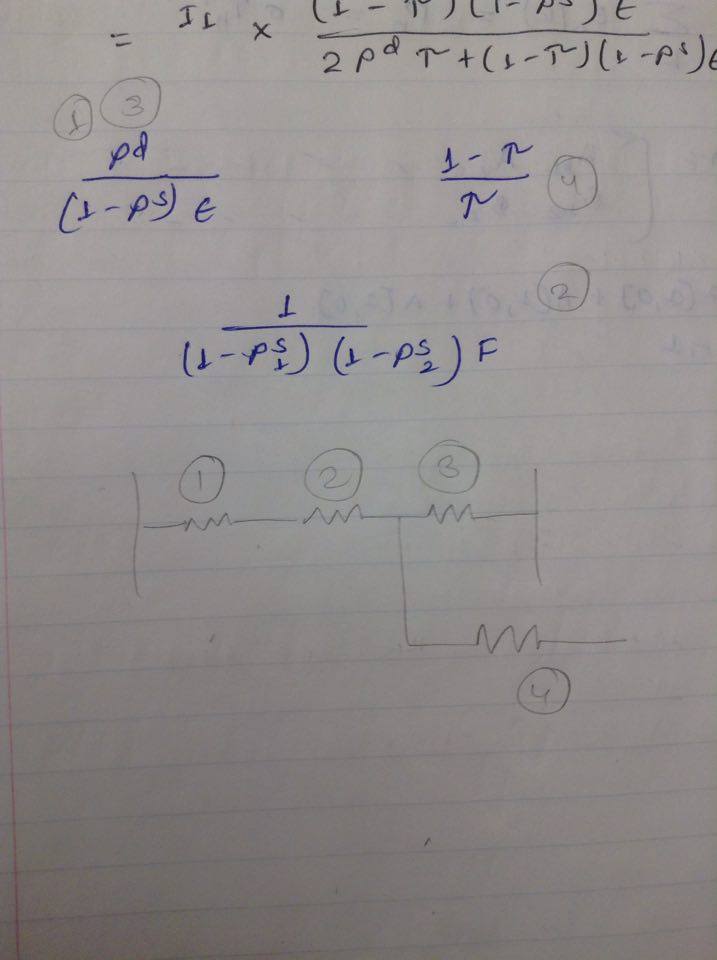 = I1 × (1 - π)(1 - ρˢ) ε
2 ρᵈ π + (1 - π)(1 - ρˢ) ε
① ③
ρᵈ / (1 - ρˢ) ε
1 - π / π ④
1 / (1 - ρˢ₁) (1 - ρˢ₂) F ②
① ② ③
④